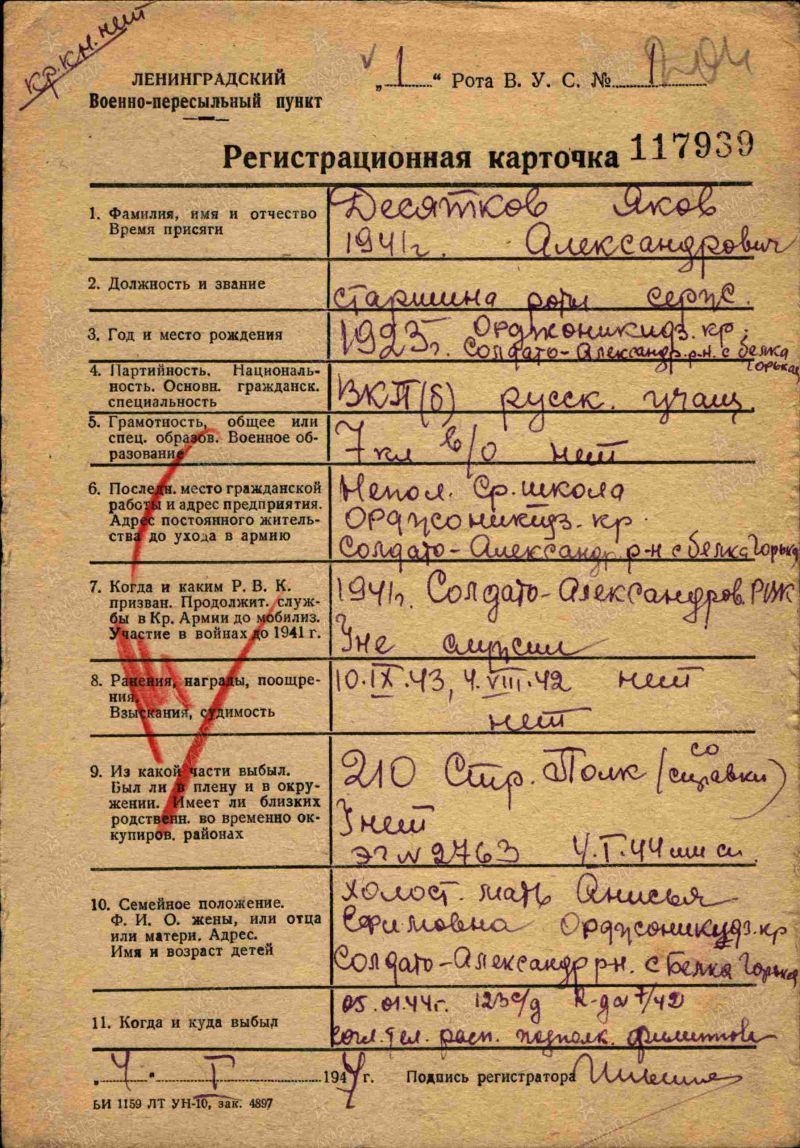 кр.кн.нет
ЛЕНИНГРАДСКИЙ
Военно-пересыльный пункт
„1“ Рота В. У. С. № 1
Регистрационная карточка 117939
1. Фамилия, имя и отчество
Время присяги
Десятков Яков
1941г. Александрович
2. Должность и звание
старшина роты серж.
3. Год и место рождения
1923г. Орджоникидз. кр.
Солдато-Александр. р-н. с белка
Горькая
4. Партийность. Националь-
ность. Основн. гражданск.
специальность
ВКП(б) русск. учащ.
5. Грамотность, общее или
спец. образов. Военное об-
разование
7 кл в/о нет
6. Последн. место гражданской
работы и адрес предприятия.
Адрес постоянного житель-
ства до ухода в армию
Непол. Ср. школа
Орджоникидз. кр.
Солдато-Александр. р-н с белка Горька
7. Когда и каким Р. В. К.
призван. Продолжит. служ-
бы в Кр. Армии до мобилиз.
Участие в войнах до 1941 г.
1941г. Солдато-Александров. РВК
не служил
8. Ранения, награды, поощре-
ния.
Взыскания, судимость
10.IX.43, 4.VIII.42 нет
нет
9. Из какой части выбыл.
Был ли в плену и в окру-
жении. Имеет ли близких
родственн. во временно ок-
купиров. районах
210 Стр. Полк (со справки)
нет
ЭГ N 2763 4.I.44
10. Семейное положение.
Ф. И. О. жены, или отца
или матери. Адрес.
Имя и возраст детей
холост. мать Анисья
Ефимовна Орджоникидз. кр
Солдато-Александр р-н. с Белка Горька
11. Когда и куда выбыл
05.01.44г. 123 с/д
согл. тел. расп. подполк. Филиппова
„4“ I 1944 г. Подпись регистратора
БИ 1159 ЛТ УН-10, зак. 4897